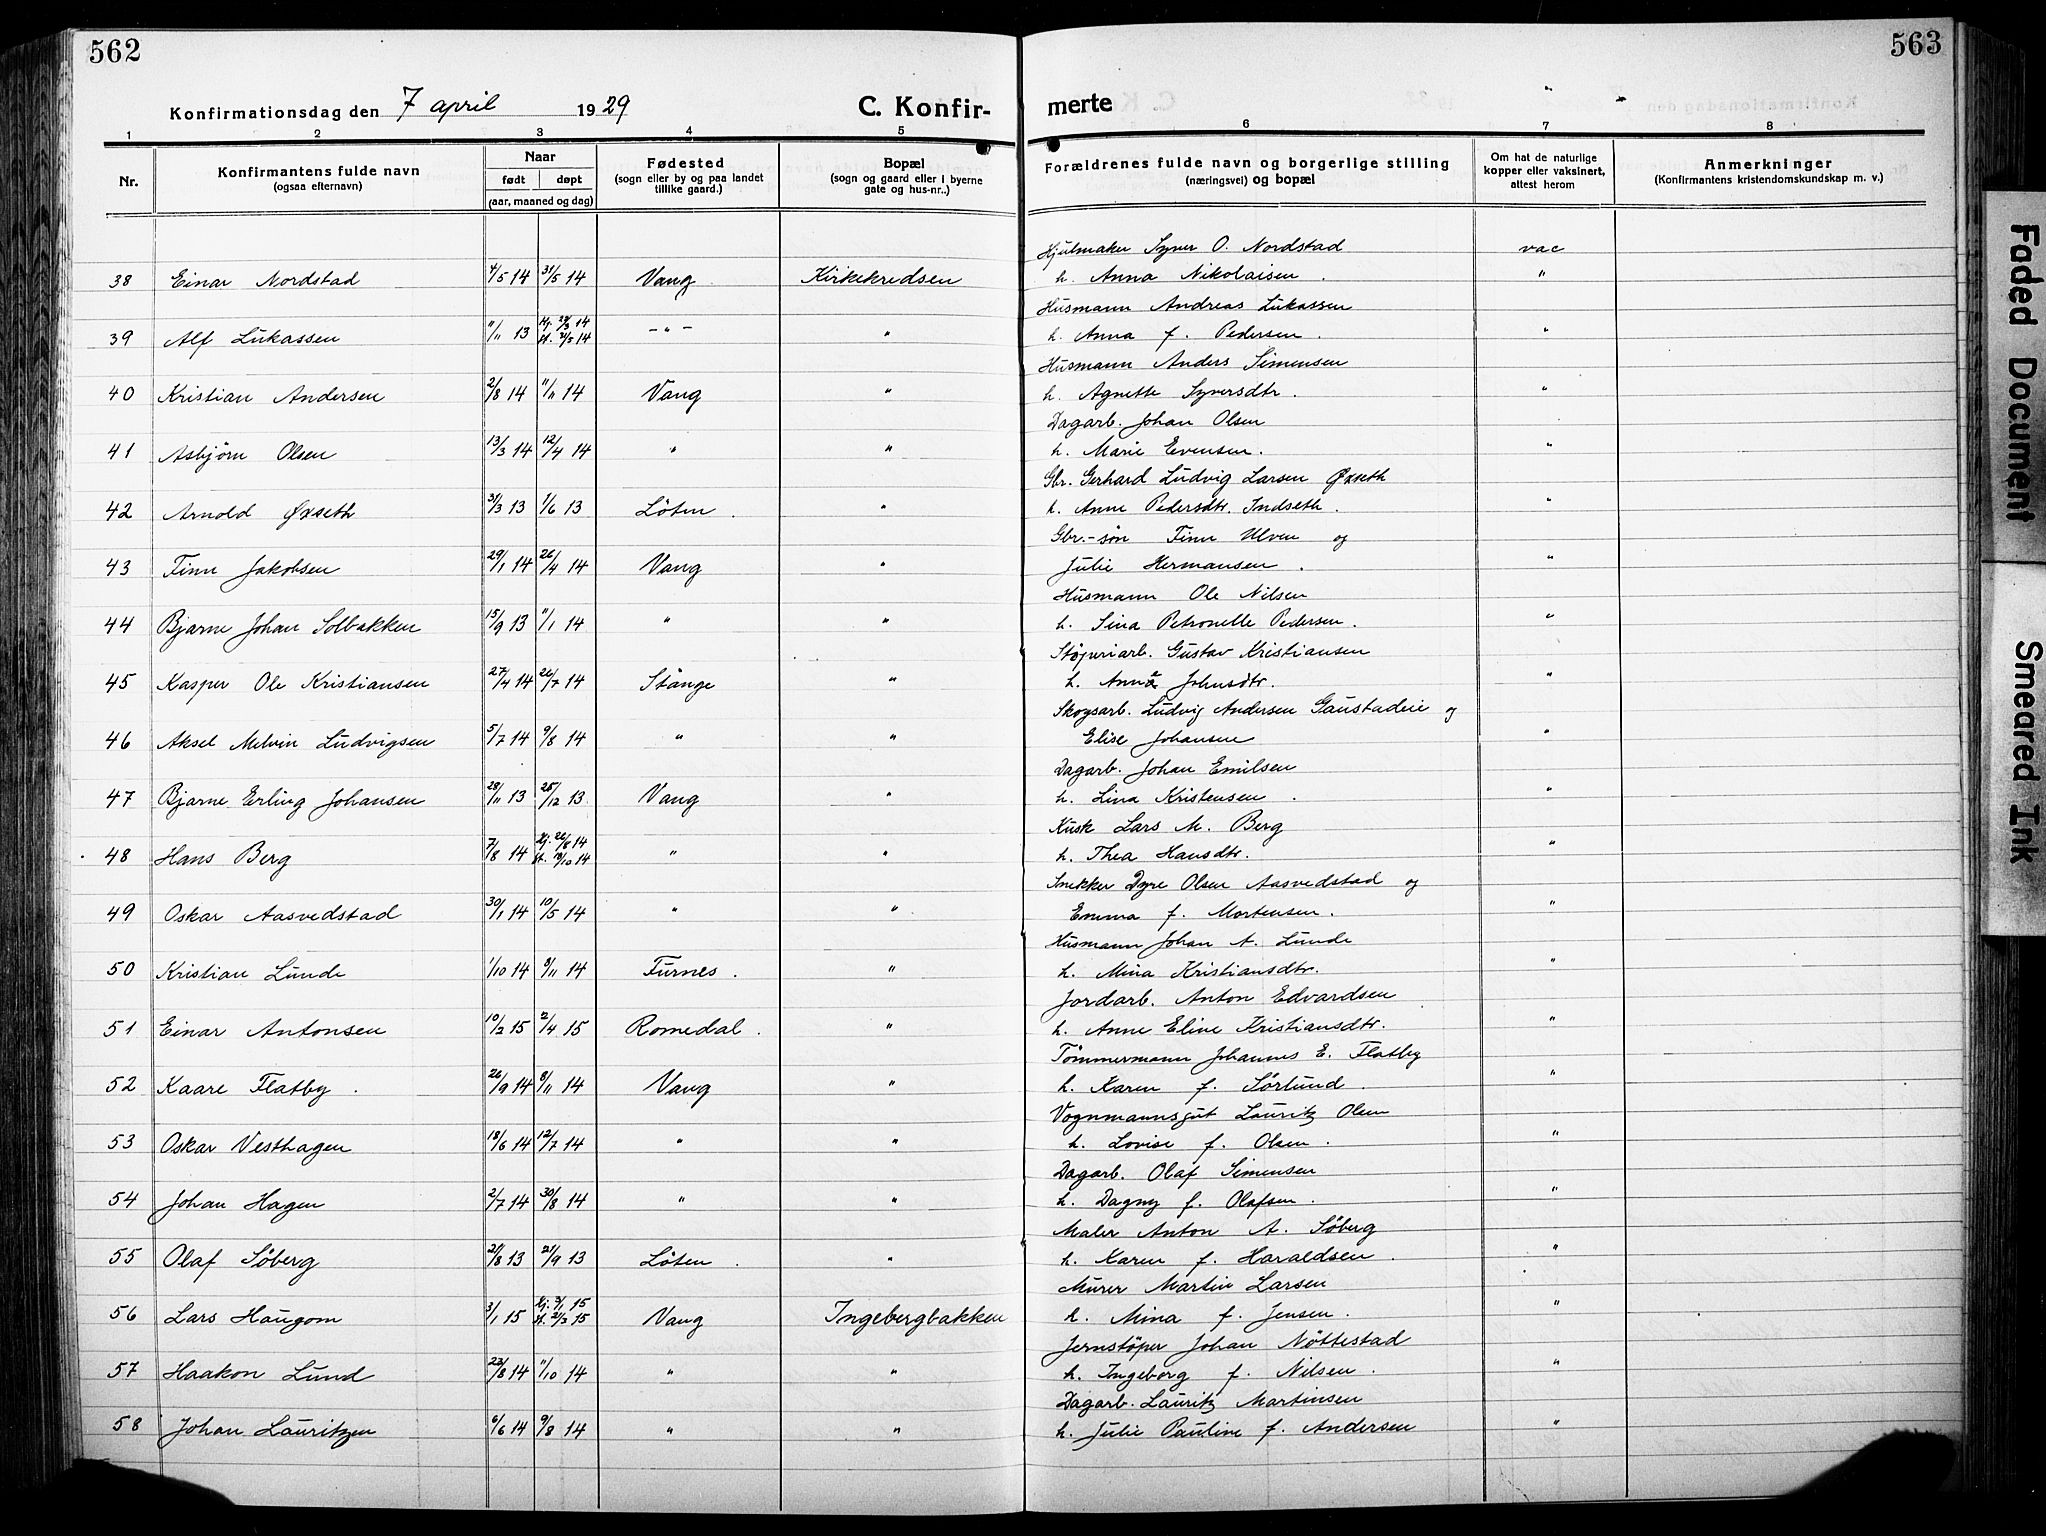 562
563
Konfirmationsdag den 7 april 1929
C. Konfir-
merte
1 2 3 4 5 6 7 8
Nr.
Konfirmantens fulde navn
(ogsaa efternavn)
Naar
født døpt
(aar, maaned og dag)
Fødested
(sogn eller by og paa landet
tillike gaard.)
Bopæl
(sogn og gaard eller i byerne
gate og hus-nr..)
Forældrenes fulde navn og borgerlige stilling
(næringsvei) og bopæl
Om hat de naturlige
kopper eller vaksinert,
attest herom
Anmerkninger
(Konfirmantens kristendomskundskap m. v.)
Hjulmaker Syver O. Nordstad vac
38 Einar Nordstad 4/5 14 31/5 14 Vang Kirkekredsen h. Anna Nikolaisen . "
Husmann Andreas Lukassen
39 Alf Lukassen 11/11 13 Kj. 29/3 14 - " - " h. Anna f. Pedersen . "
st. 21/5 14
Husmann Anders Simensen
40 Kristian Andersen 2/8 14 11/11 14 Vang " h. Agnette Syversdtr . "
Dagarb. Johan Olsen
41 Asbjörn Olsen 13/3 14 12/4 14 " " h. Marie Evensen . "
Gbr. Gerhard Ludvig Larsen Øxseth
42 Arnold Øxseth 31/3 13 1/6 13 Löten . " h. Anne Pedersdtr. Indseth . "
Gbr.-søn Finn Ulven og
43 Finn Jakobsen 29/1 14 26/4 14 Vang " Julie Hermansen . "
Husmann Ole Nilsen
44 Bjarne Johan Solbakken 15/9 13 11/1 14 " " h. Sina Petronelle Pedersen . "
Støperiarb. Gustav Kristiansen
45 Kasper Ole Kristiansen 27/4 14 26/7 14 Stange " h. Anna Johnsdtr. "
Skogsarb. Ludvig Andersen Gaustadeie og
46 Aksel Melvin Ludvigsen 5/7 14 9/8 14 " " Elise Johansen "
Dagarb. Johan Emilsen
47 Bjarne Erling Johansen 28/11 13 25/12 13 Vang " h. Lina Kristensen . "
Kusk Lars M. Berg
48 Hans Berg 7/8 14 Kj. 26/8 14 " " h. Thea Hansdtr. "
st. 18/10 14
Snekker Dyre Olsen Aasvedstad og
49 Oskar Aasvedstad 30/1 14 10/5 14 " " Emma f. Mortensen . "
Husmann Johan A. Lunde
50 Kristian Lunde 1/10 14 8/11 14 Furnes . " h. Mina Kristiansdtr. "
Jordarb. Anton Edvardsen
51 Einar Antonsen 10/2 15 2/4 15 Romedal . " h. Anne Eline Kristiansdtr. "
Tömmermann Johannes E. Flatby
52 Kaare Flatby . 26/9 14 8/11 14 Vang " h. Karen f. Sörlund . "
Vognmannsgut Lauritz Olsen
53 Oskar Vesthagen 18/6 14 12/7 14 " " h. Lovise f. Olsen . "
Dagarb. Olaf Simensen
54 Johan Hagen 2/7 14 30/8 14 " " h. Dagny f. Olafsen . "
Maler Anton A. Söberg
55 Olaf Söberg 21/8 13 21/9 13 Löten . " h. Karen f. Haraldsen . "
Murer Martin Larsen
56 Lars Haugom 3/1 15 Kj. 3/1 15 Vang Ingebergbakken h. Mina f. Jensen . "
st. 21/3 15
Jernstöper Johan Nöttestad
57 Haakon Lund 23/8 14 11/10 14 " " h. Ingeborg f. Nilsen . "
Dagarb. Lauritz Martinsen
58 Johan Lauritzen 6/6 14 9/8 14 " " h. Julie Pauline f. Andersen "
Faded Document
Smeared Ink